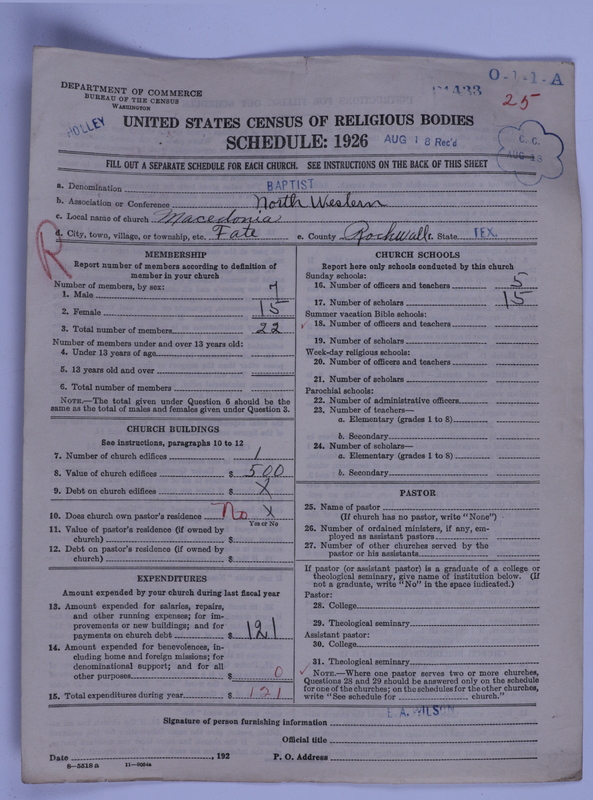 O-1-1-A
DEPARTMENT OF COMMERCE
BUREAU OF THE CENSUS
WASHINGTON
25
HOLLEY
UNITED STATES CENSUS OF RELIGIOUS BODIES
SCHEDULE: 1926
AUG 18 Rec'd
C. C.
AUG 18
FILL OUT A SEPARATE SCHEDULE FOR EACH CHURCH. SEE INSTRUCTIONS ON THE BACK OF THIS SHEET
a. Denomination BAPTIST
b. Association or Conference North Western
c. Local name of church Macedonia
d. City, town, village, or township, etc. Fate e. County Rockwall f. State TEX.
R
MEMBERSHIP
Report number of members according to definition of
member in your church
Number of members, by sex:
1. Male 7
2. Female 15
3. Total number of members 22
Number of members under and over 13 years old:
4. Under 13 years of age
5. 13 years old and over
6. Total number of members
NOTE.—The total given under Question 6 should be the
same as the total of males and females given under Question 3.
CHURCH BUILDINGS
See instructions, paragraphs 10 to 12
7. Number of church edifices 1
8. Value of church edifices $ 500
9. Debt on church edifices $ X
10. Does church own pastor's residence No X
Yes or No
11. Value of pastor's residence (if owned by
church) $
12. Debt on pastor's residence (if owned by
church) $
EXPENDITURES
Amount expended by your church during last fiscal year
13. Amount expended for salaries, repairs,
and other running expenses; for im-
provements or new buildings; and for
payments on church debt $ 121
14. Amount expended for benevolences, in-
cluding home and foreign missions; for
denominational support; and for all
other purposes $ 0
15. Total expenditures during year $ 121
CHURCH SCHOOLS
Report here only schools conducted by this church
Sunday schools:
16. Number of officers and teachers 5
17. Number of scholars 15
Summer vacation Bible schools:
18. Number of officers and teachers
19. Number of scholars
Week-day religious schools:
20. Number of officers and teachers
21. Number of scholars
Parochial schools:
22. Number of administrative officers
23. Number of teachers—
a. Elementary (grades 1 to 8)
b. Secondary
24. Number of scholars—
a. Elementary (grades 1 to 8)
b. Secondary
PASTOR
25. Name of pastor
(If church has no pastor, write "None")
26. Number of ordained ministers, if any, em-
ployed as assistant pastors
27. Number of other churches served by the
pastor or his assistants
If pastor (or assistant pastor) is a graduate of a college or
theological seminary, give name of institution below. (If
not a graduate, write "No" in the space indicated.)
Pastor:
28. College
29. Theological seminary
Assistant pastor:
30. College
31. Theological seminary
NOTE.—Where one pastor serves two or more churches,
Questions 28 and 29 should be answered only on the schedule
for one of the churches; on the schedules for the other churches,
write "See schedule for church."
E. A. WILSON
Signature of person furnishing information
Official title
Date , 192 P. O. Address
8-5518 a 11-9084a